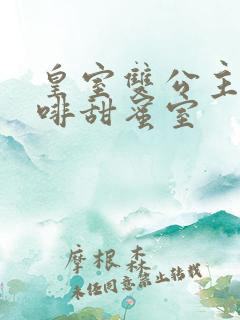 皇室雙公主
啡甜蜜室
摩根森
未經同意禁止轉載